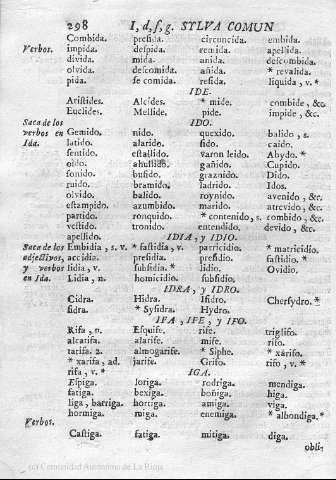 298 I, d, f, g. SYLVA COMUN
Combida. preſida. circuncida. embida.
Verbos. impida. deſpida. remida. apellida.
divida. mida. anida. deſcombida.
olvida. deſcomida. añida. * revalida.
pida. ſe comida. reſida. liquida, v. *
IDE.
Ariſtides. Alcides. * mide. combide, &c.
Euclides. Mellide. pide. impide, &c.
Saca de los IDO.
verbos en Gemido. nido. quexido. balido, s.
Ida. latido. alarido. ſido. caido.
ſentido. eſtallido. varon leido. Abydo. *
oido. ahullido. gañido. Cupido.
ſonido. bufido. graznido. Dido.
ruido. bramido. ladrido. Idos.
olvido. balido. roynido. avenido, &c.
eſtampido. azumbido. marido. atrevido, &c.
partido. ronquido. * contenido, s. combido, &c.
veſtido. tronido. entendido. devido, &c.
apellido. IDIA, y IDIO.
Saca de los Embidia, s. v. * faſtidia, v. patricidio. * matricidio.
adjetivos, accidia. preſidia. preſidio. faſtidio. *
y verbos lidia, v. ſubſidia. * lidio. Ovidio.
en Ida. Lidia, n. homicidio. ſubſidio.
IDRA, y IDRO.
Cidra. Hidra. Iſidro. Cherſydro. *
ſidra. * Syſidra. Hydro.
IFA, IFE, y IFO.
Rifa, n. Eſquife. rife. triglifo.
alcatifa. alarife. mife. rifo.
tarifa. 2. almogarife. * Siphe. * xarifo.
* xarifa, ad. jarife. Grifo. rifo, v. *
rifa, v. * IGA.
Eſpiga. loriga. rodriga. mendiga.
fatiga. bexiga. boñiga. higa.
liga, barriga. hortiga. amiga. viga.
hormiga. miga. enemiga. * albondiga. *
Verbos.
Caſtiga. fatiga. mitiga. diga.
obli-
(c) Comunidad Autónoma de La Rioja